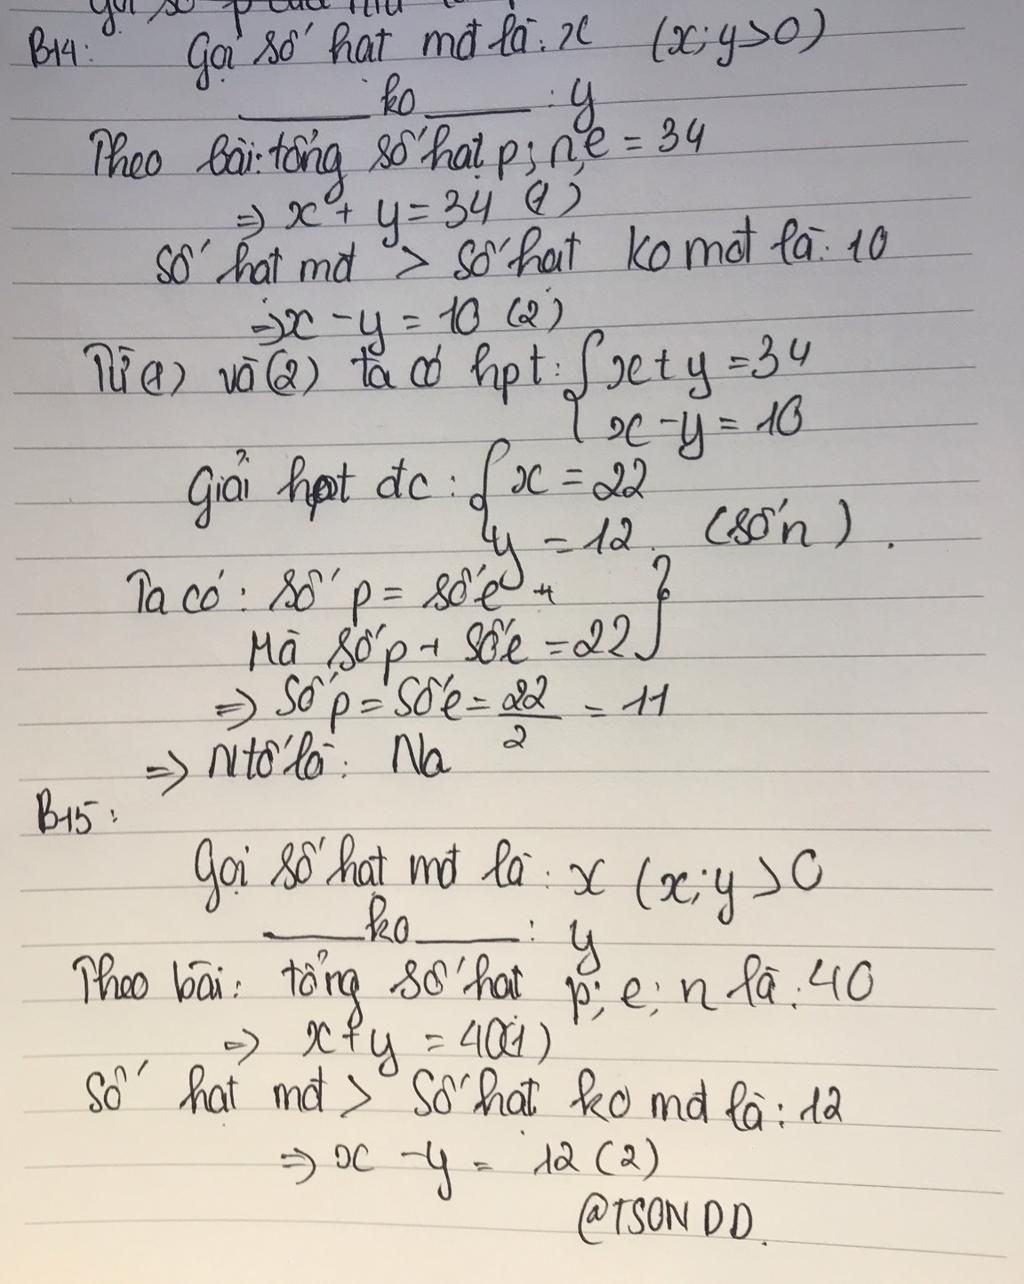 B14: Gọi số hạt mđ là: x (x;y>0)
ko : y
Theo bài: tổng số hạt p; n; e = 34
=> x + y = 34 (1)
Số hạt mđ > số hạt ko mđ là: 10
=> x - y = 10 (2)
Từ (1) và (2) ta có hpt: { x + y = 34
x - y = 10
Giải hpt đc: { x = 22
y = 12. (số n).
Ta có: số p = số e
Mà số p + số e = 22 }
=> Số p = số e = 22/2 = 11
=> Ntố là: Na
B15:
Gọi số hạt mđ là: x (x;y>0
ko : y
Theo bài: tổng số hạt p; e; n là: 40
=> x + y = 40(1)
Số hạt mđ > Số hạt ko mđ là: 12
=> x - y = 12 (2)
@TSON DD.